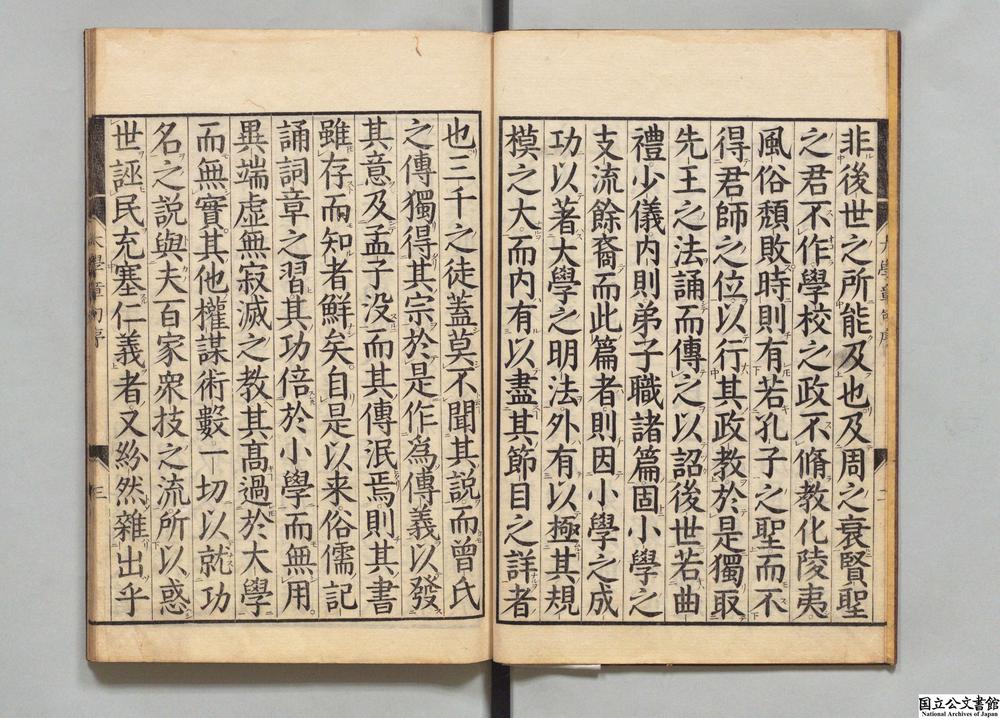 非後世之所能及也及周之衰賢聖
之君不作學校之政不脩教化陵夷
風俗頽敗時則有若孔子之聖而不
得君師之位以行其政教於是獨取
先王之法誦而傳之以詔後世若曲
禮少儀内則弟子職諸篇固小學之
支流餘裔而此篇者則因小學之成
功以著大學之明法外有以極其規
模之大而内有以盡其節目之詳者
也三千之徒蓋莫不聞其說而曾氏
之傳獨得其宗於是作為傳義以發
其意及孟子没而其傳泯焉則其書
雖存而知者鮮矣自是以来俗儒記
誦詞章之習其功倍於小學而無用
異端虚無寂滅之教其髙過於大學
而無實其他權謀術數一切以就功
名之說與夫百家衆技之流所以惑
世誣民充塞仁義者又紛然雜出乎
大學章句序
三
国立公文書館
National Archives of Japan